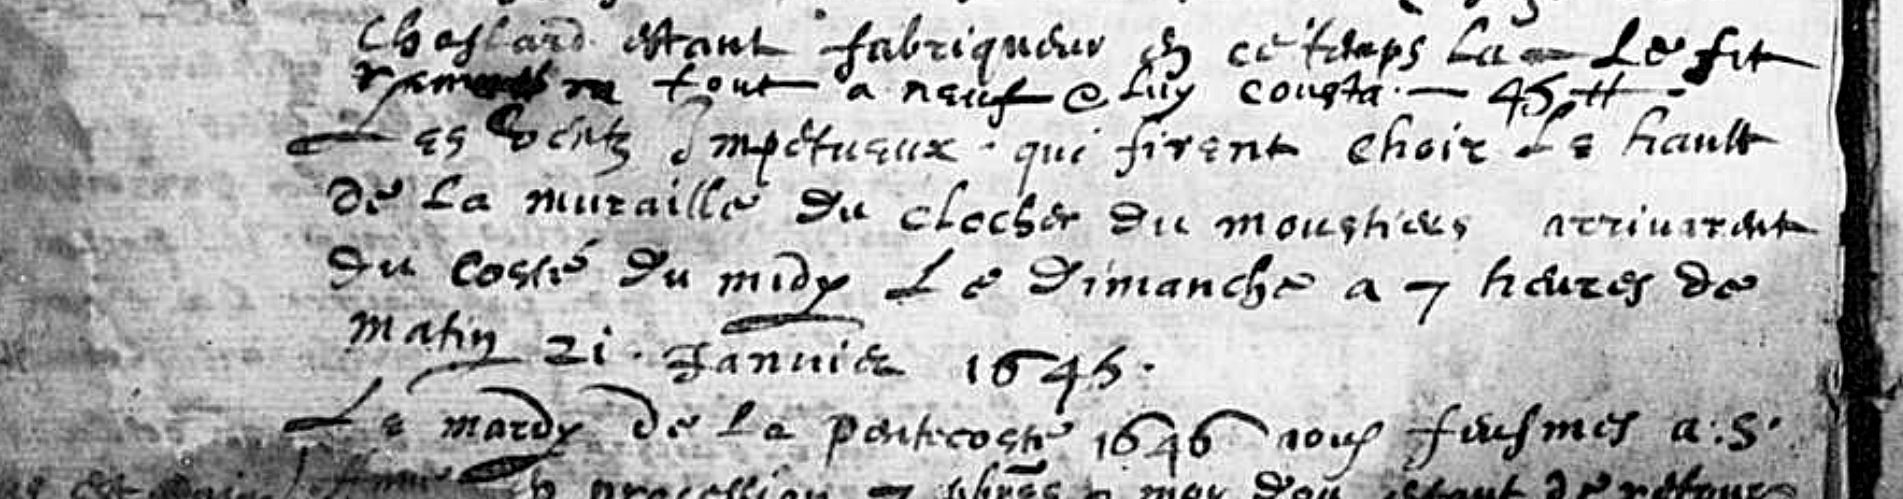 Chaslard estant fabriqueur en ce temps la Le fit
tout a neuf & luy cousta 45 ₶
Les ventz Impetueux qui firent choir Le hault
de La muraille du clocher du moustiers arrivarent
du costé du midy Le dimanche a 7 heures de
matin 21 Janvier 1645.
Le mardy de La pentecoste 1646 nous feusmes a S.
procession moy d'ou estant de retour